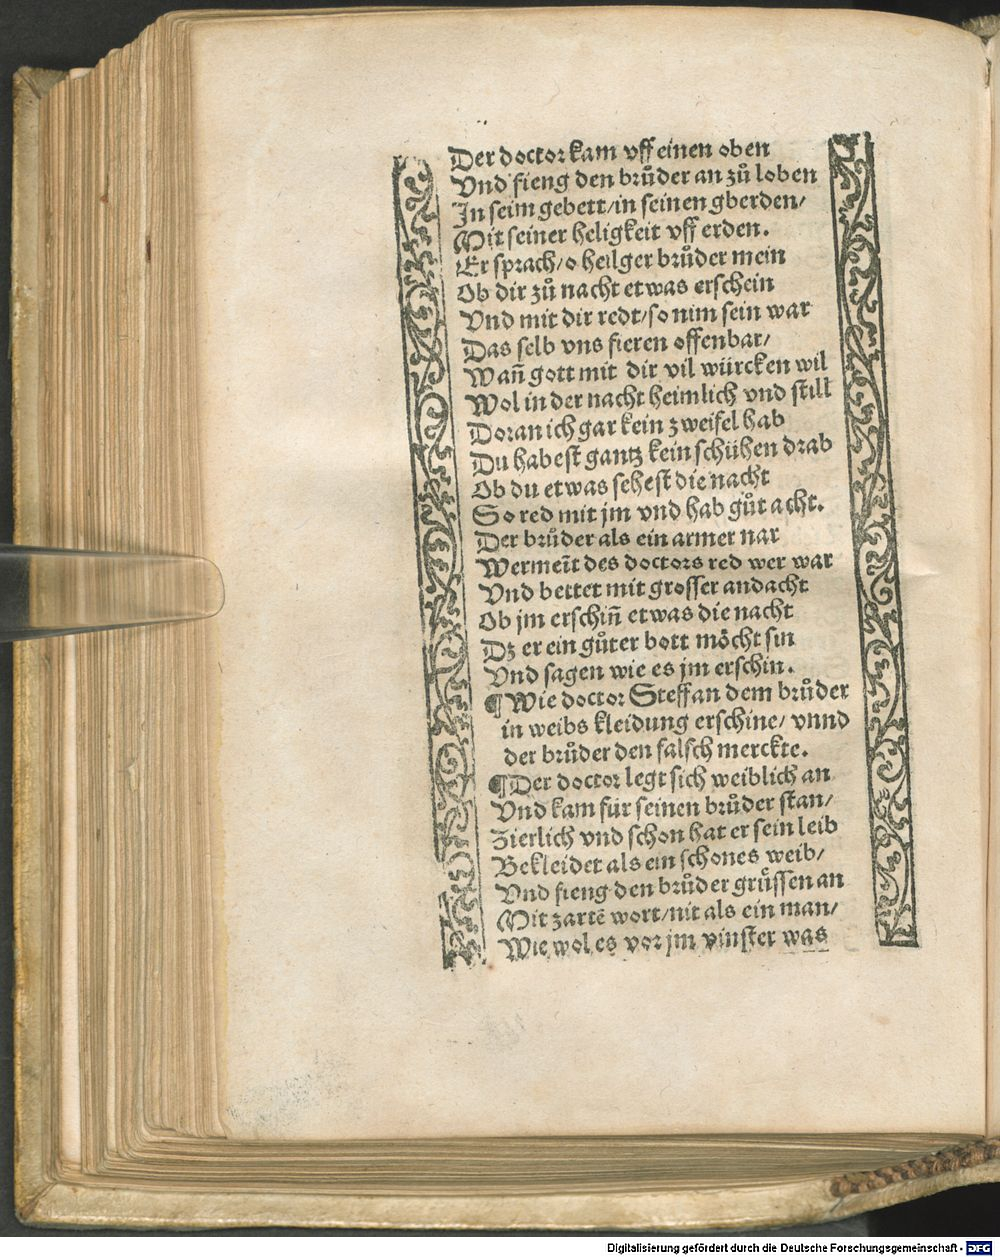 Der doctor kam vff einen oben
Vnd fieng den brůder an zů loben
In seim gebett/in seinen gberden/
Mit seiner heligkeit vff erden.
Er sprach/o heilger brůder mein
Ob dir zů nacht etwas erschein
Vnd mit dir redt/so nim sein war
Das selb vns fieren offenbar/
Wañ gott mit dir vil würcken wil
Wol in der nacht heimlich vnd still
Doran ich gar kein zweifel hab
Du habest gantz kein schühen drab
Ob du etwas sehest die nacht
So red mit jm vnd hab gůt acht.
Der brůder als ein armer nar
Wermeñt des doctors red wer war
Vnd bettet mit grosser andacht
Ob jm erschiñ etwas die nacht
Dz er ein gůter bott möcht sin
Vnd sagen wie es jm erschin.
¶Wie doctor Steffan dem brůder
in weibs kleidung erschine/ vnnd
der brůder den falsch merckte.
¶Der doctor legt sich weiblich an
Vnd kam für seinen brůder stan/
Zierlich vnd schon hat er sein leib
Bekleidet als ein schones weib/
Vnd fieng den brůder grůssen an
Mit zartē wort/nit als ein man/
Wie wol es vor jm vinster was
Digitalisierung gefördert durch die Deutsche Forschungsgemeinschaft - DFG